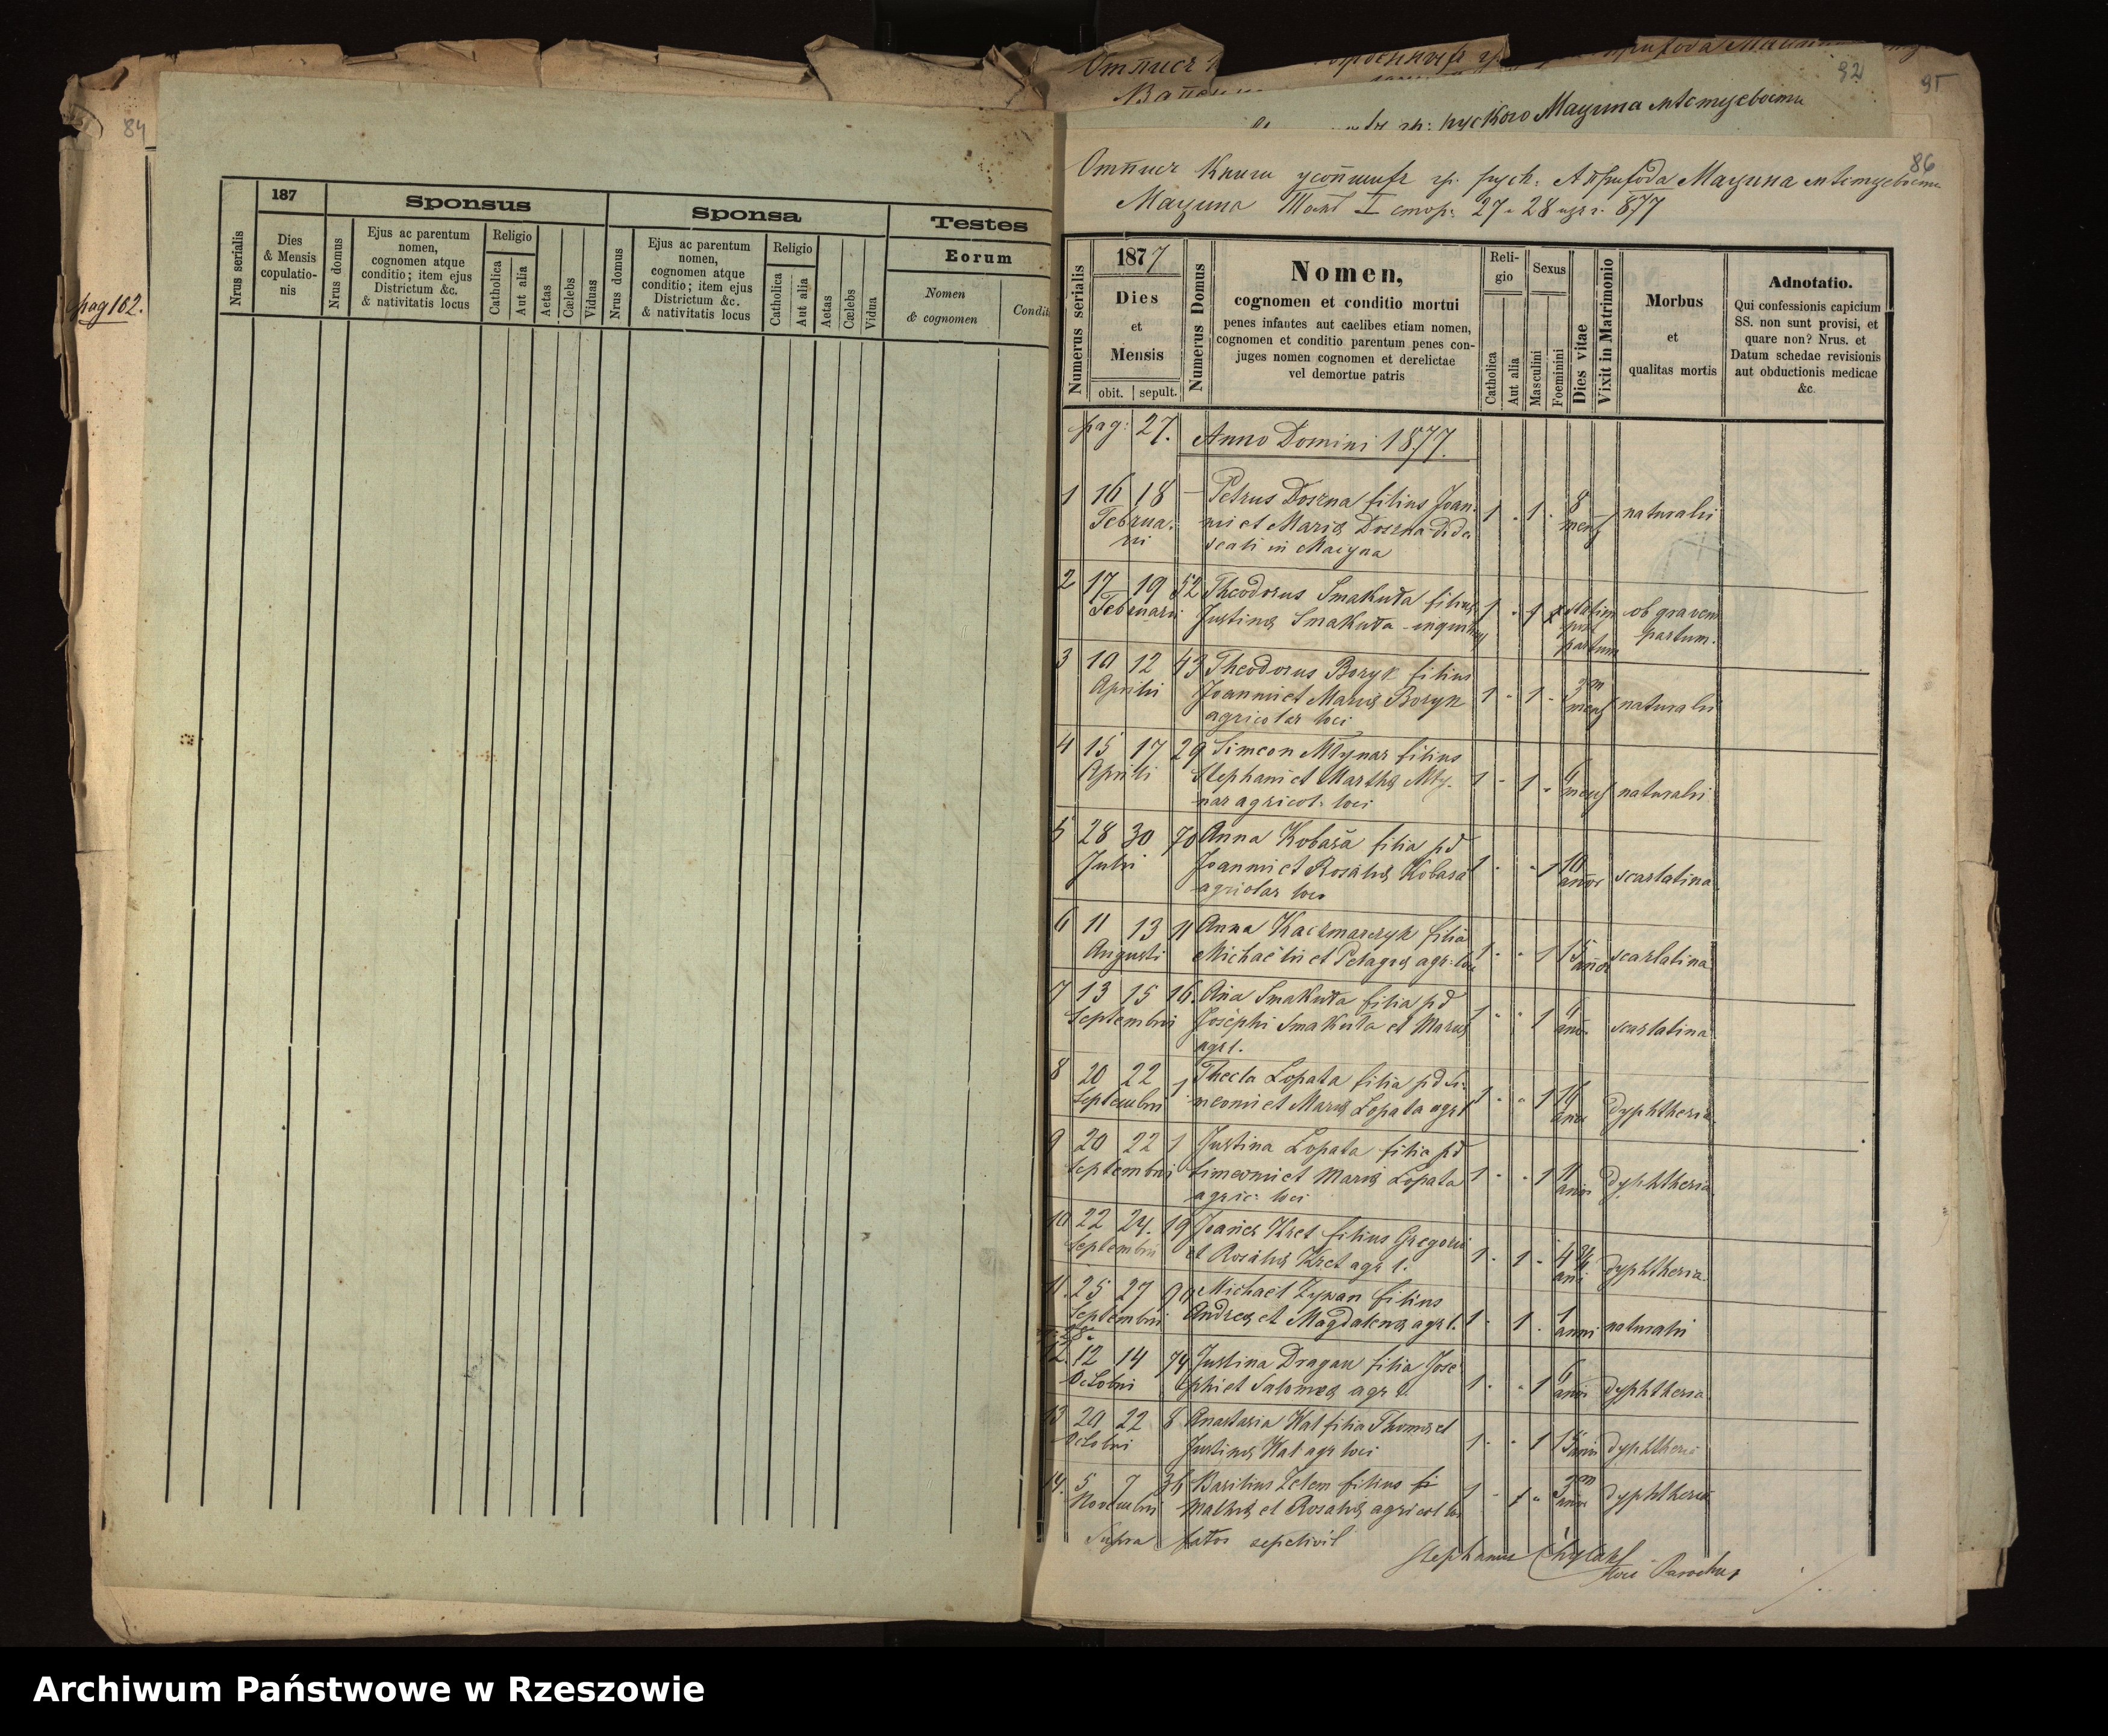 84
pag 102.
187
Sponsus
Sponsa
Testes
Nrus serialis
Dies
& Mensis
copulatio-
nis
Nrus domus
Ejus ac parentum
nomen,
cognomen atque
conditio; item ejus
Districtum &c.
& nativitatis locus
Religio
Catholica
Aut alia
Aetas
Cælebs
Viduas
Nrus domus
Ejus ac parentum
nomen,
cognomen atque
conditio; item ejus
Districtum &c.
& nativitatis locus
Religio
Catholica
Aut alia
Aetas
Cælebs
Vidua
Eorum
Nomen
& cognomen
Condit
92
95
86
Отпись Книги Мацина
Мацина Томъ I стор: 27 и 28 877
Numerus serialis
1877
Dies
et
Mensis
obit. sepult.
Numerus Domus
Nomen,
cognomen et conditio mortui
penes infantes aut caelibes etiam nomen,
cognomen et conditio parentum penes con-
juges nomen cognomen et derelictae
vel demortue patris
Reli-
gio
Catholica
Aut alia
Sexus
Masculini
Foeminini
Dies vitae
Vixit in Matrimonio
Morbus
et
qualitas mortis
Adnotatio.
Qui confessionis capicium
SS. non sunt provisi, et
quare non? Nrus. et
Datum schedae revisionis
aut obductionis medicae
&c.
pag: 27. Anno Domini 1877.
1 16 18 — Petrus Doszna filius Joan- 1 - 1 - 8 naturalis
Februa- nis et Mariæ Doszna dida mens
rii scali in Macyna
2 17 19 52 Theodorus Smakuła filius 1 - 1 statim ob gravem
Februarii Justinæ Smakuła post partum.
partum
3 10 12 43 Theodorus Boryk filius
Aprilis Joannis et Mariæ Boryk 1 - 1 - mens naturalis
agricolar loci
4 15 17 29 Simeon Młynar filius
Aprilis Stephani et Marthæ Mły- 1 - 1 - 6 mens naturalis
nar agricol: loci
5 28 30 70 Anna Kobasa filia pd
Julii Joannis et Rosaliæ Kobasa 1 - - 1 10 annor scarlatina
agricolar loci
6 11 13 11 Anna Kaczmarczyk filia
Augusti Michaëlis et Pelagiæ agr: loci 1 - - 1 annor scarlatina
7 13 15 16 Ana Smakuła filia pd
Septembris Josephi Smakuła et Mariæ 1 - - 1 scarlatina
agr l.
8 20 22 1 Thecla Lopata filia pd Si-
Septembris meonis et Mariæ Lopata agr l 1 - - 1 dyphtheria
9 20 22 1 Justina Lopata filia pd
Septembris Simeonis et Mariæ Lopata 1 - - 1 11 dyphtheria
agric: loci
10 22 24. 19 Joanes Kret filius Gregorii
Septembris et Rosaliæ Kret agr l. 1 - 1 - 4 dyphtheria
11. 25 27 90 Michael Zywan filius
Septembris Andreæ et Magdalenæ agr l. 1 - 1 - 1 anni naturalis
12. 12 14 74 Justina Dragan filia Jose
Octobris phi et Salomeæ agr l. 1 - - 1 6 dyphtheria
13 20 22 8 Anastasia Hal filia Thomæ et
Octobris Justinæ Hal agr loci 1 - - 1 dyphtheria
14. 5 7 36 Basilius Zelem filius
Novembris et Rosaliæ agricol loci 1 - 1 - dyphtheria
Supra fatos sepelivit
Stephanus Chylak
loci Parochus
Archiwum Państwowe w Rzeszowie